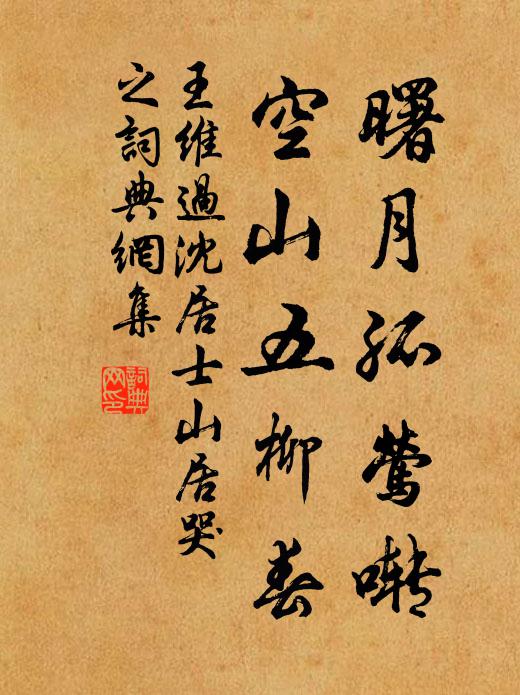 曙月孤鶯囀
空山五柳春
王維過沈居士山居哭
之詞典網集
詞典
网印